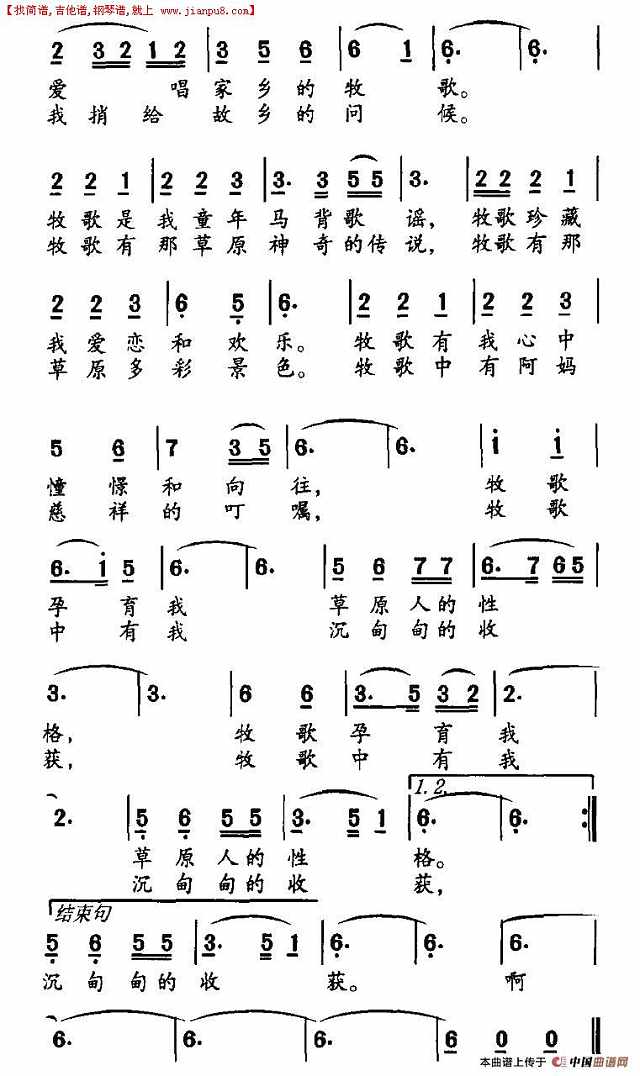 【找简谱,吉他谱,钢琴谱,就上 www.jianpu8.com】
2 3 2 1 2 | 3 5 6 | 6 1 | 6. | 6. |
爱 唱 家 乡 的 牧 歌。
我 捎 给 故 乡 的 问 候。
2 2 1 | 2 2 3 | 3. 3 5 5 | 3. | 2 2 2 1 |
牧 歌 是 我 童 年 马 背 歌 谣, 牧 歌 珍 藏
牧 歌 有 那 草 原 神 奇 的 传 说, 牧 歌 有 那
2 2 3 | 6 5 | 6. | 2 2 1 | 2 2 3 |
我 爱 恋 和 欢 乐。 牧 歌 有 我 心 中
草 原 多 彩 景 色。 牧 歌 中 有 阿 妈
5 6 | 7 3 5 | 6. | 6. | i i |
憧 憬 和 向 往, 牧 歌
慈 祥 的 叮 嘱, 牧 歌
6. i 5 | 6. | 6. | 5 6 7 7 | 6. 7 6 5 |
孕 育 我 草 原 人 的 性
中 有 我 沉 甸 甸 的 收
3. | 3. | 6 6 | 3. 5 3 2 | 2. |
格, 牧 歌 孕 育 我
获, 牧 歌 中 有 我
1. 2.
2. | 5 6 5 5 | 3. 5 1 | 6. | 6. :‖
草 原 人 的 性 格。
沉 甸 甸 的 收 获,
结束句
5 6 5 5 | 3. 5 1 | 6. | 6. | 6. |
沉 甸 甸 的 收 获。 啊
6. | 6. | 6. | 6. | 6 0 0 ‖
本曲谱上传于 中国曲谱网